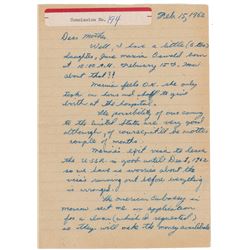 Commission No. 194
Feb. 15, 1962
Dear Mother,
Well, I have a little (6 lbs)
daughter, June Marina Oswald born
at 10:00 A.M. February 15th. How
about that??
Marina feels O.K. she only
took an hour and half to give
birth at the hospital.
The possibility of our coming
to the United States are very good
although, of course, it'll be another
couple of months.
Marina's exit visa to leave
the U.S.S.R. is good until Dec 1, 1962
so we have no worries about the
visa's running out before everything
is arranged.
The American Embassy in
Moscow sent me an application
for a loan (which I requested)
so they will ask the money available